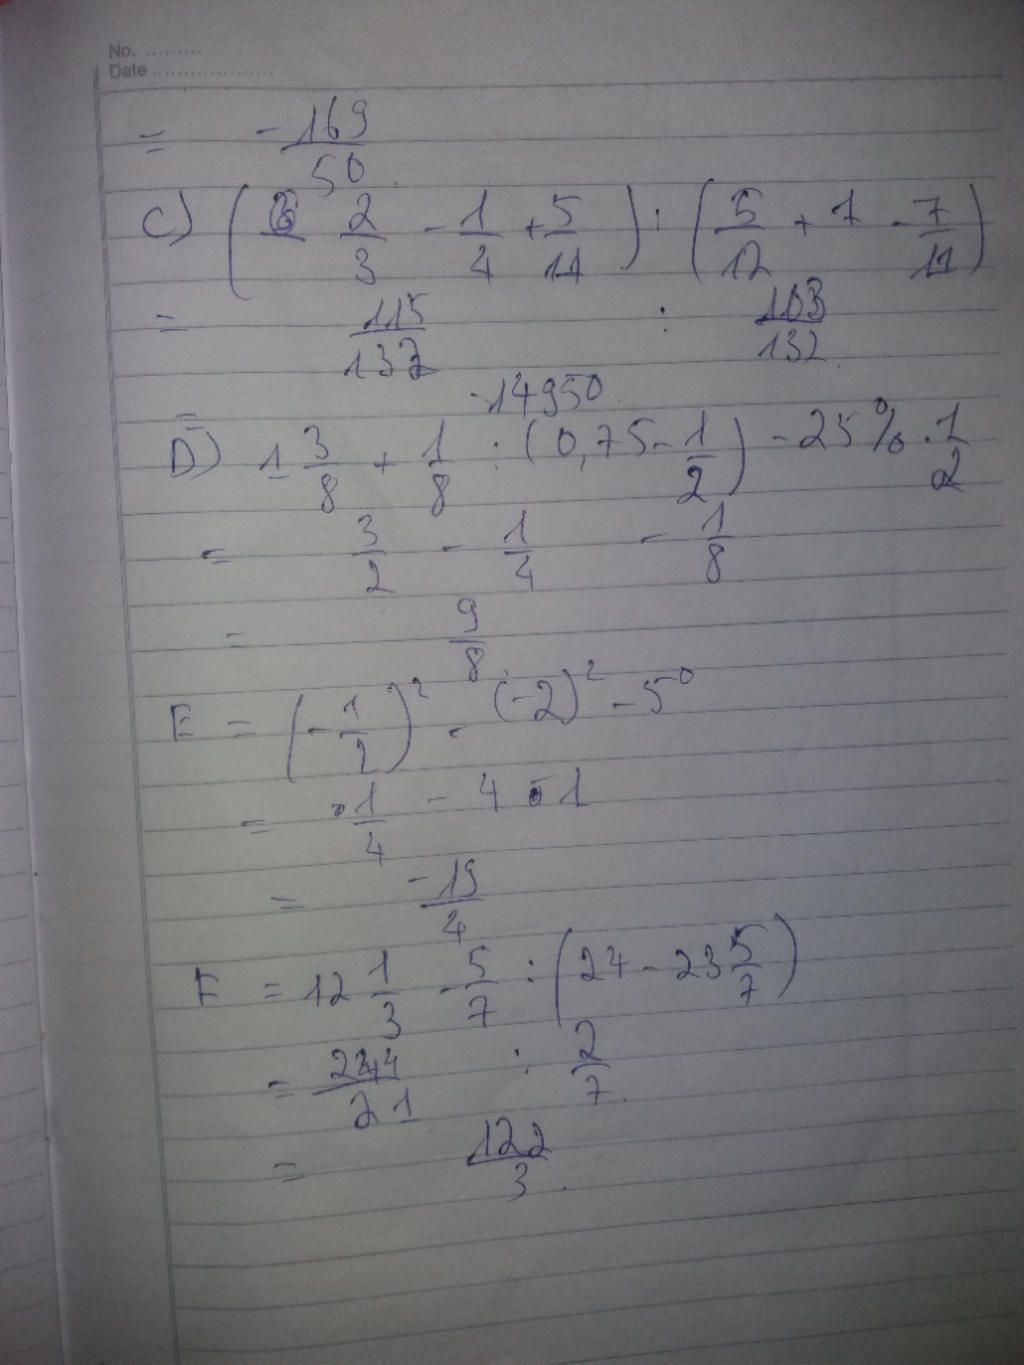 No. .........
Date ..................
= -169/50
C) ( 2/3 - 1/4 + 5/11 ) : ( 5/12 + 1 - 7/11 )
= 115/132 : 103/132
= -14950
D) 1 3/8 + 1/8 : ( 0,75 - 1/2 ) - 25% . 1/2
= 3/2 - 1/4 - 1/8
= 9/8
E = ( - 1/2 )² - (-2)² - 5⁰
= 1/4 - 4 - 1
= -19/4
F = 12 1/3 - 5/7 : ( 24 - 23 5/7 )
= 244/21 : 2/7
= 122/3